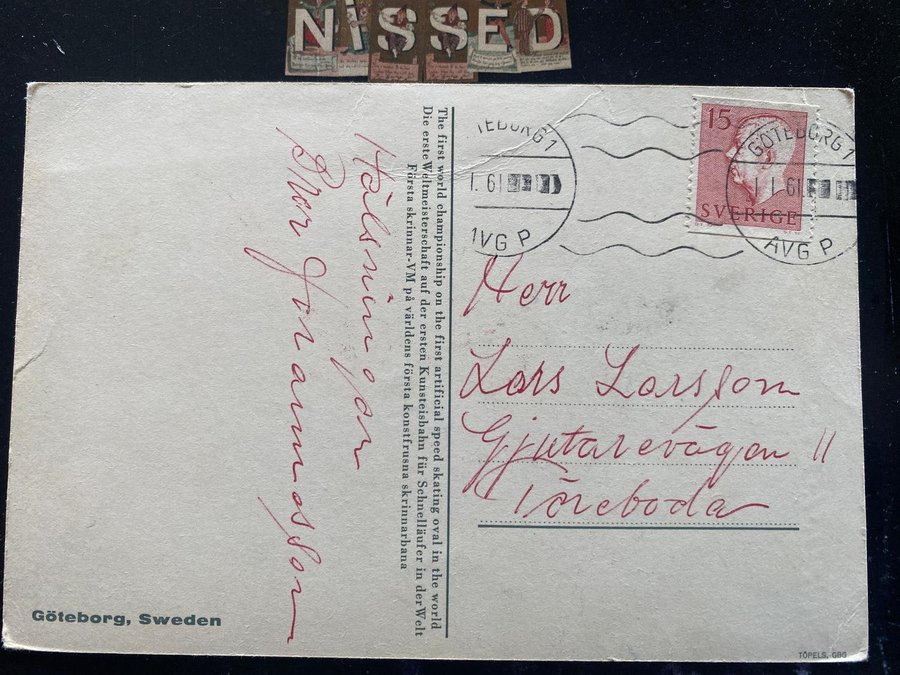 NISSED
The first world championship on the first artificial speed skating oval in the world
Die erste Weltmeisterschaft auf der ersten Kunsteisbahn für Schnelläufer in der Welt
Första skrinnar-VM på världens första konstfrusna skrinnarbana
Hälsningar
Thor Joramosson
TEBORG 1
1. 61
1VG P
15
SVERIGE
GÖTEBORG 1
1 1. 61
AVG P
Herr
Lars Larsson
Gjutarevägen 11
Töreboda
Göteborg, Sweden
TÖPELS, GBG